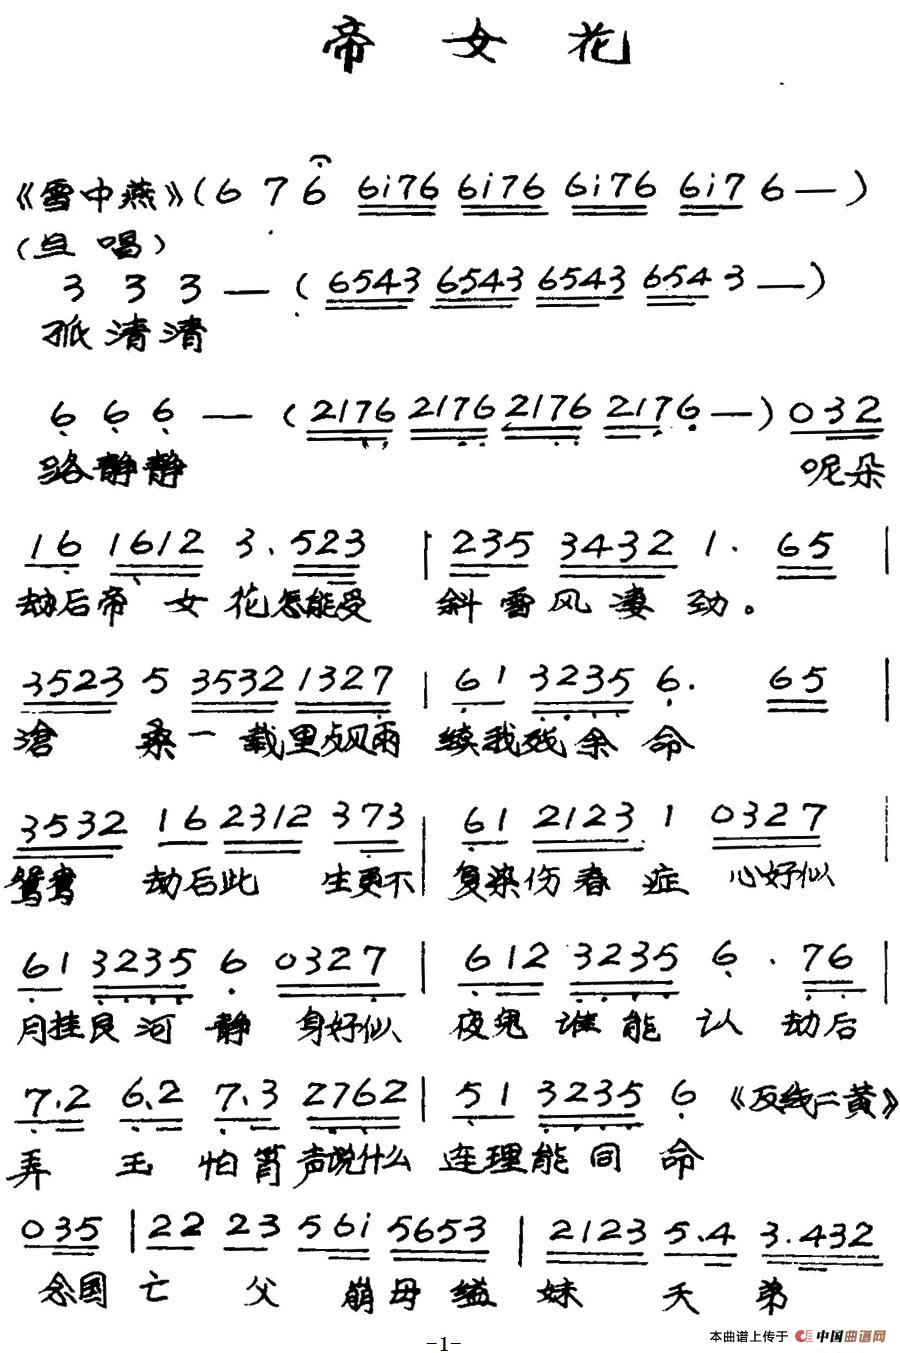 帝女花
《雪中燕》(6 7 6 6i76 6i76 6i76 6i7 6 —)
(旦唱)
3 3 3 — (6543 6543 6543 654 3 —)
孤清清
6 6 6 — (2176 2176 2176 217 6 —) 032
路静静 呢朵
16 1612 3. 523 | 235 3432 1. 65 |
劫后帝女花怎能受 斜雪风凄劲。
3523 5 3532 1327 | 61 3235 6. 65 |
沧桑一载里点风雨 续我残余命
3532 16 2312 373 | 61 2123 1 0327 |
鸳鸯劫后此生更不 复染伤春症 心好似
61 3235 6 0327 | 612 3235 6. 76 |
月挂良河静 身好似 夜鬼谁能认 劫后
7.2 6.2 7.3 2762 | 51 3235 6 《反线二黄》
弄玉怕箫声说什么 连理能同命
035 | 22 23 56i 5653 | 2123 5.4 3.432
念国亡父崩母缢妹夭弟
-1-
本曲谱上传于 中国曲谱网